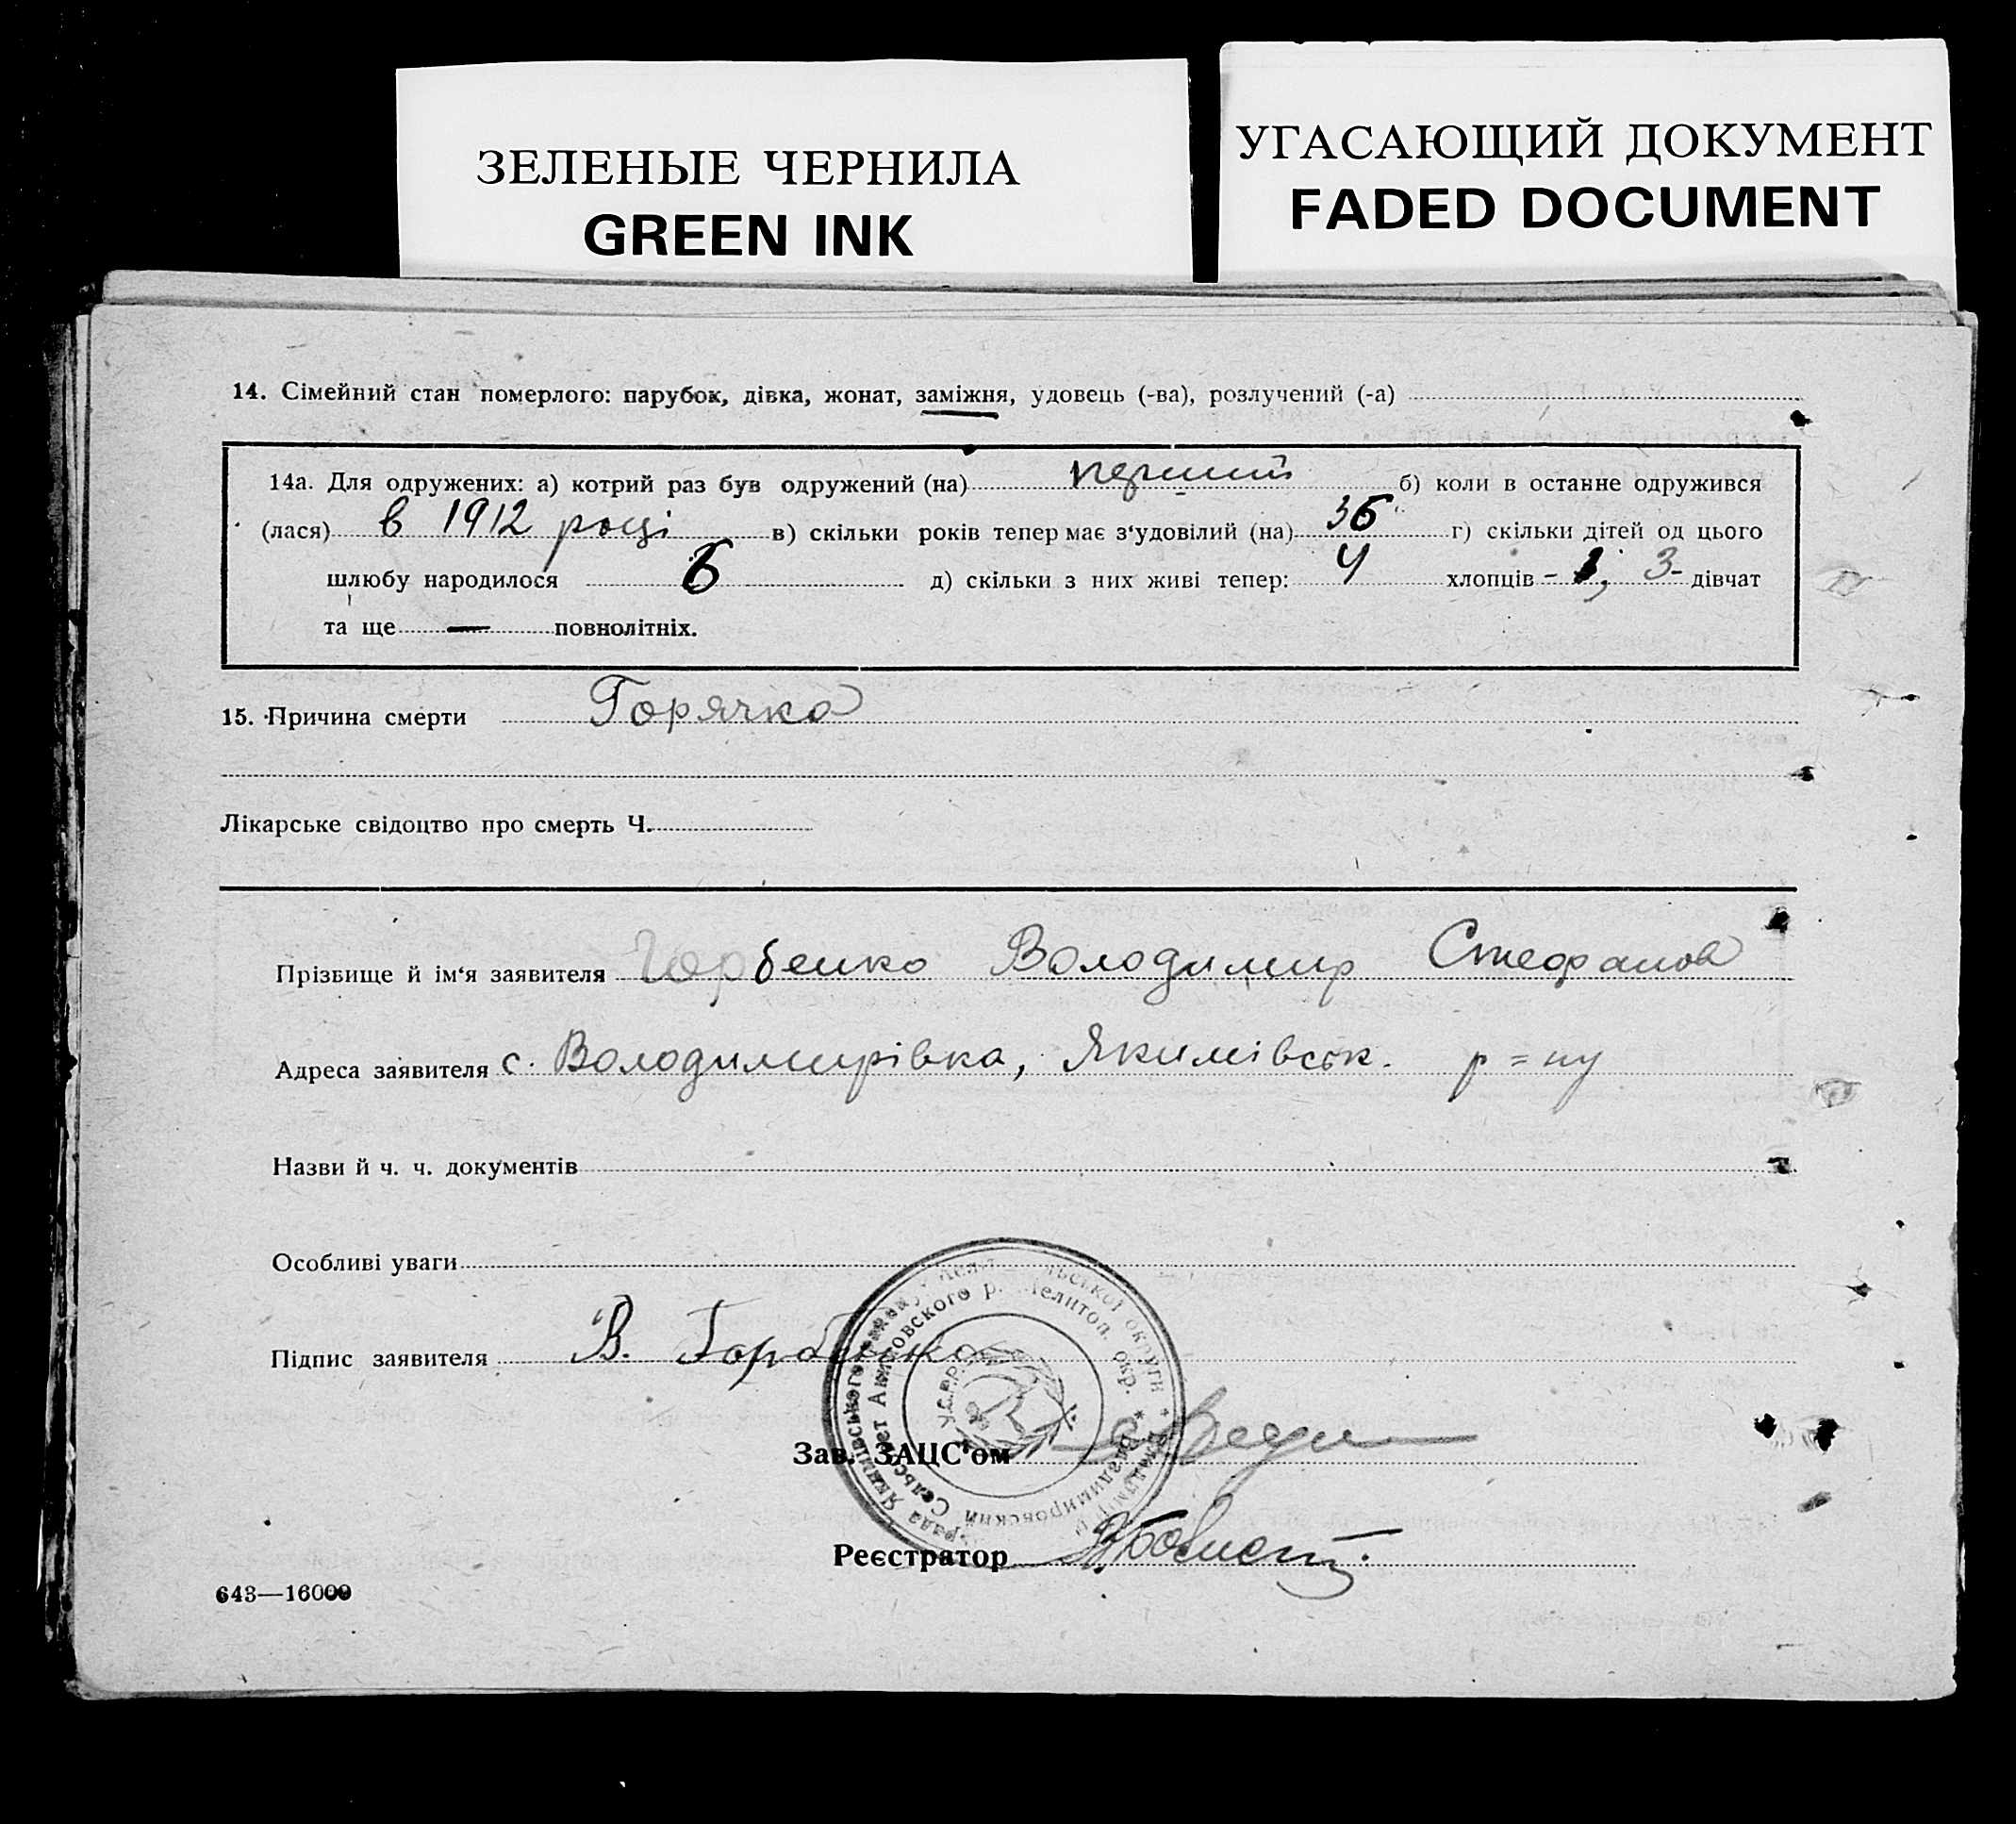 ЗЕЛЕНЫЕ ЧЕРНИЛА
GREEN INK
УГАСАЮЩИЙ ДОКУМЕНТ
FADED DOCUMENT
14. Сімейний стан померлого: парубок, дівка, жонат, заміжня, удовець (-ва), розлучений (-а)
14а. Для одружених: а) котрий раз був одружений (на) перший б) коли в останне одружився
(лася) в 1912 році в) скільки років тепер має з‘удовілий (на) 36 г) скільки дітей од цього
шлюбу народилося 6 д) скільки з них живі тепер: 4 хлопців - 1, 3- дівчат
та ще — повнолітніх.
15. Причина смерти Горячка
Лікарське свідоцтво про смерть Ч.
Прізвище й ім‘я заявителя Горбенко Володимир Стефанов
Адреса заявителя с. Володимирівка, Якимівськ. р=ну
Назви й ч. ч. документів
Особливі уваги
Підпис заявителя В. Горбенко
Зав. ЗАЦС‘ом
Реєстратор
643—16000